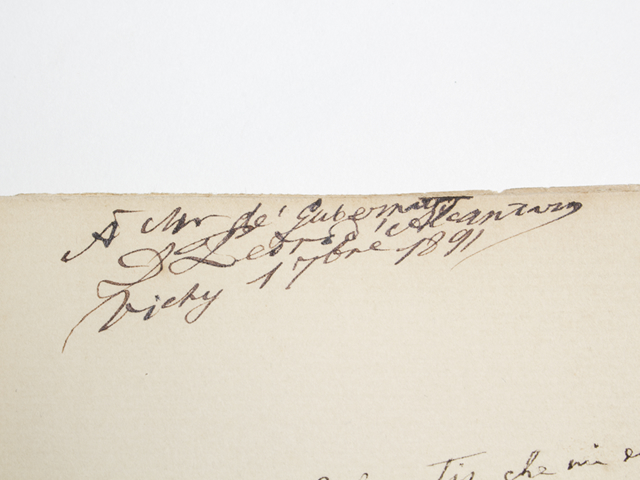 A Mr de Gubernatis
D Pedro d'Alcantara
Vichy 1 7bre 1891
che mi